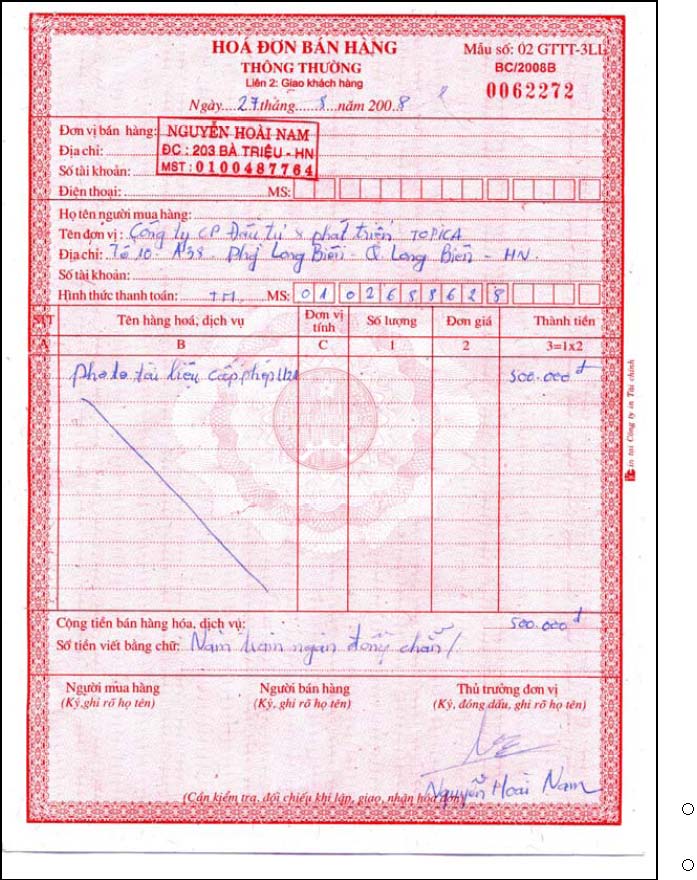 HOÁ ĐƠN BÁN HÀNG
THÔNG THƯỜNG
Liên 2: Giao khách hàng
Mẫu số: 02 GTTT-3LL
BC/2008B
0062272
Ngày....27tháng....8....năm 2008
Đơn vị bán hàng: NGUYỄN HOÀI NAM
Địa chỉ: ĐC : 203 BÀ TRIỆU - HN
Số tài khoản: MST : 0100487764
Điện thoại: MS:
Họ tên người mua hàng:
Tên đơn vị : Công ty CP Đầu tư & phát triển TOPICA
Địa chỉ: Tổ 10 - A38 Long Biên - Q Long Biên - HN.
Số tài khoản:
Hình thức thanh toán: TM MS: 01 02688628
STT Tên hàng hoá, dịch vụ Đơn vị tính Số lượng Đơn giá Thành tiền
A B C 1 2 3=1x2
photo tài liệu cấp phép 500.000đ
Cộng tiền bán hàng hóa, dịch vụ: 500.000đ
Số tiền viết bằng chữ: Năm trăm ngàn đồng chẵn/
Người mua hàng Người bán hàng Thủ trưởng đơn vị
(Ký,ghi rõ họ tên) (Ký, ghi rõ họ tên) (Ký, đóng dấu, ghi rõ họ tên)
Nguyễn Hoài Nam
(Cần kiểm tra, đối chiếu khi lập, giao, nhận hóa đơn)
in tại Công ty in Tài chính